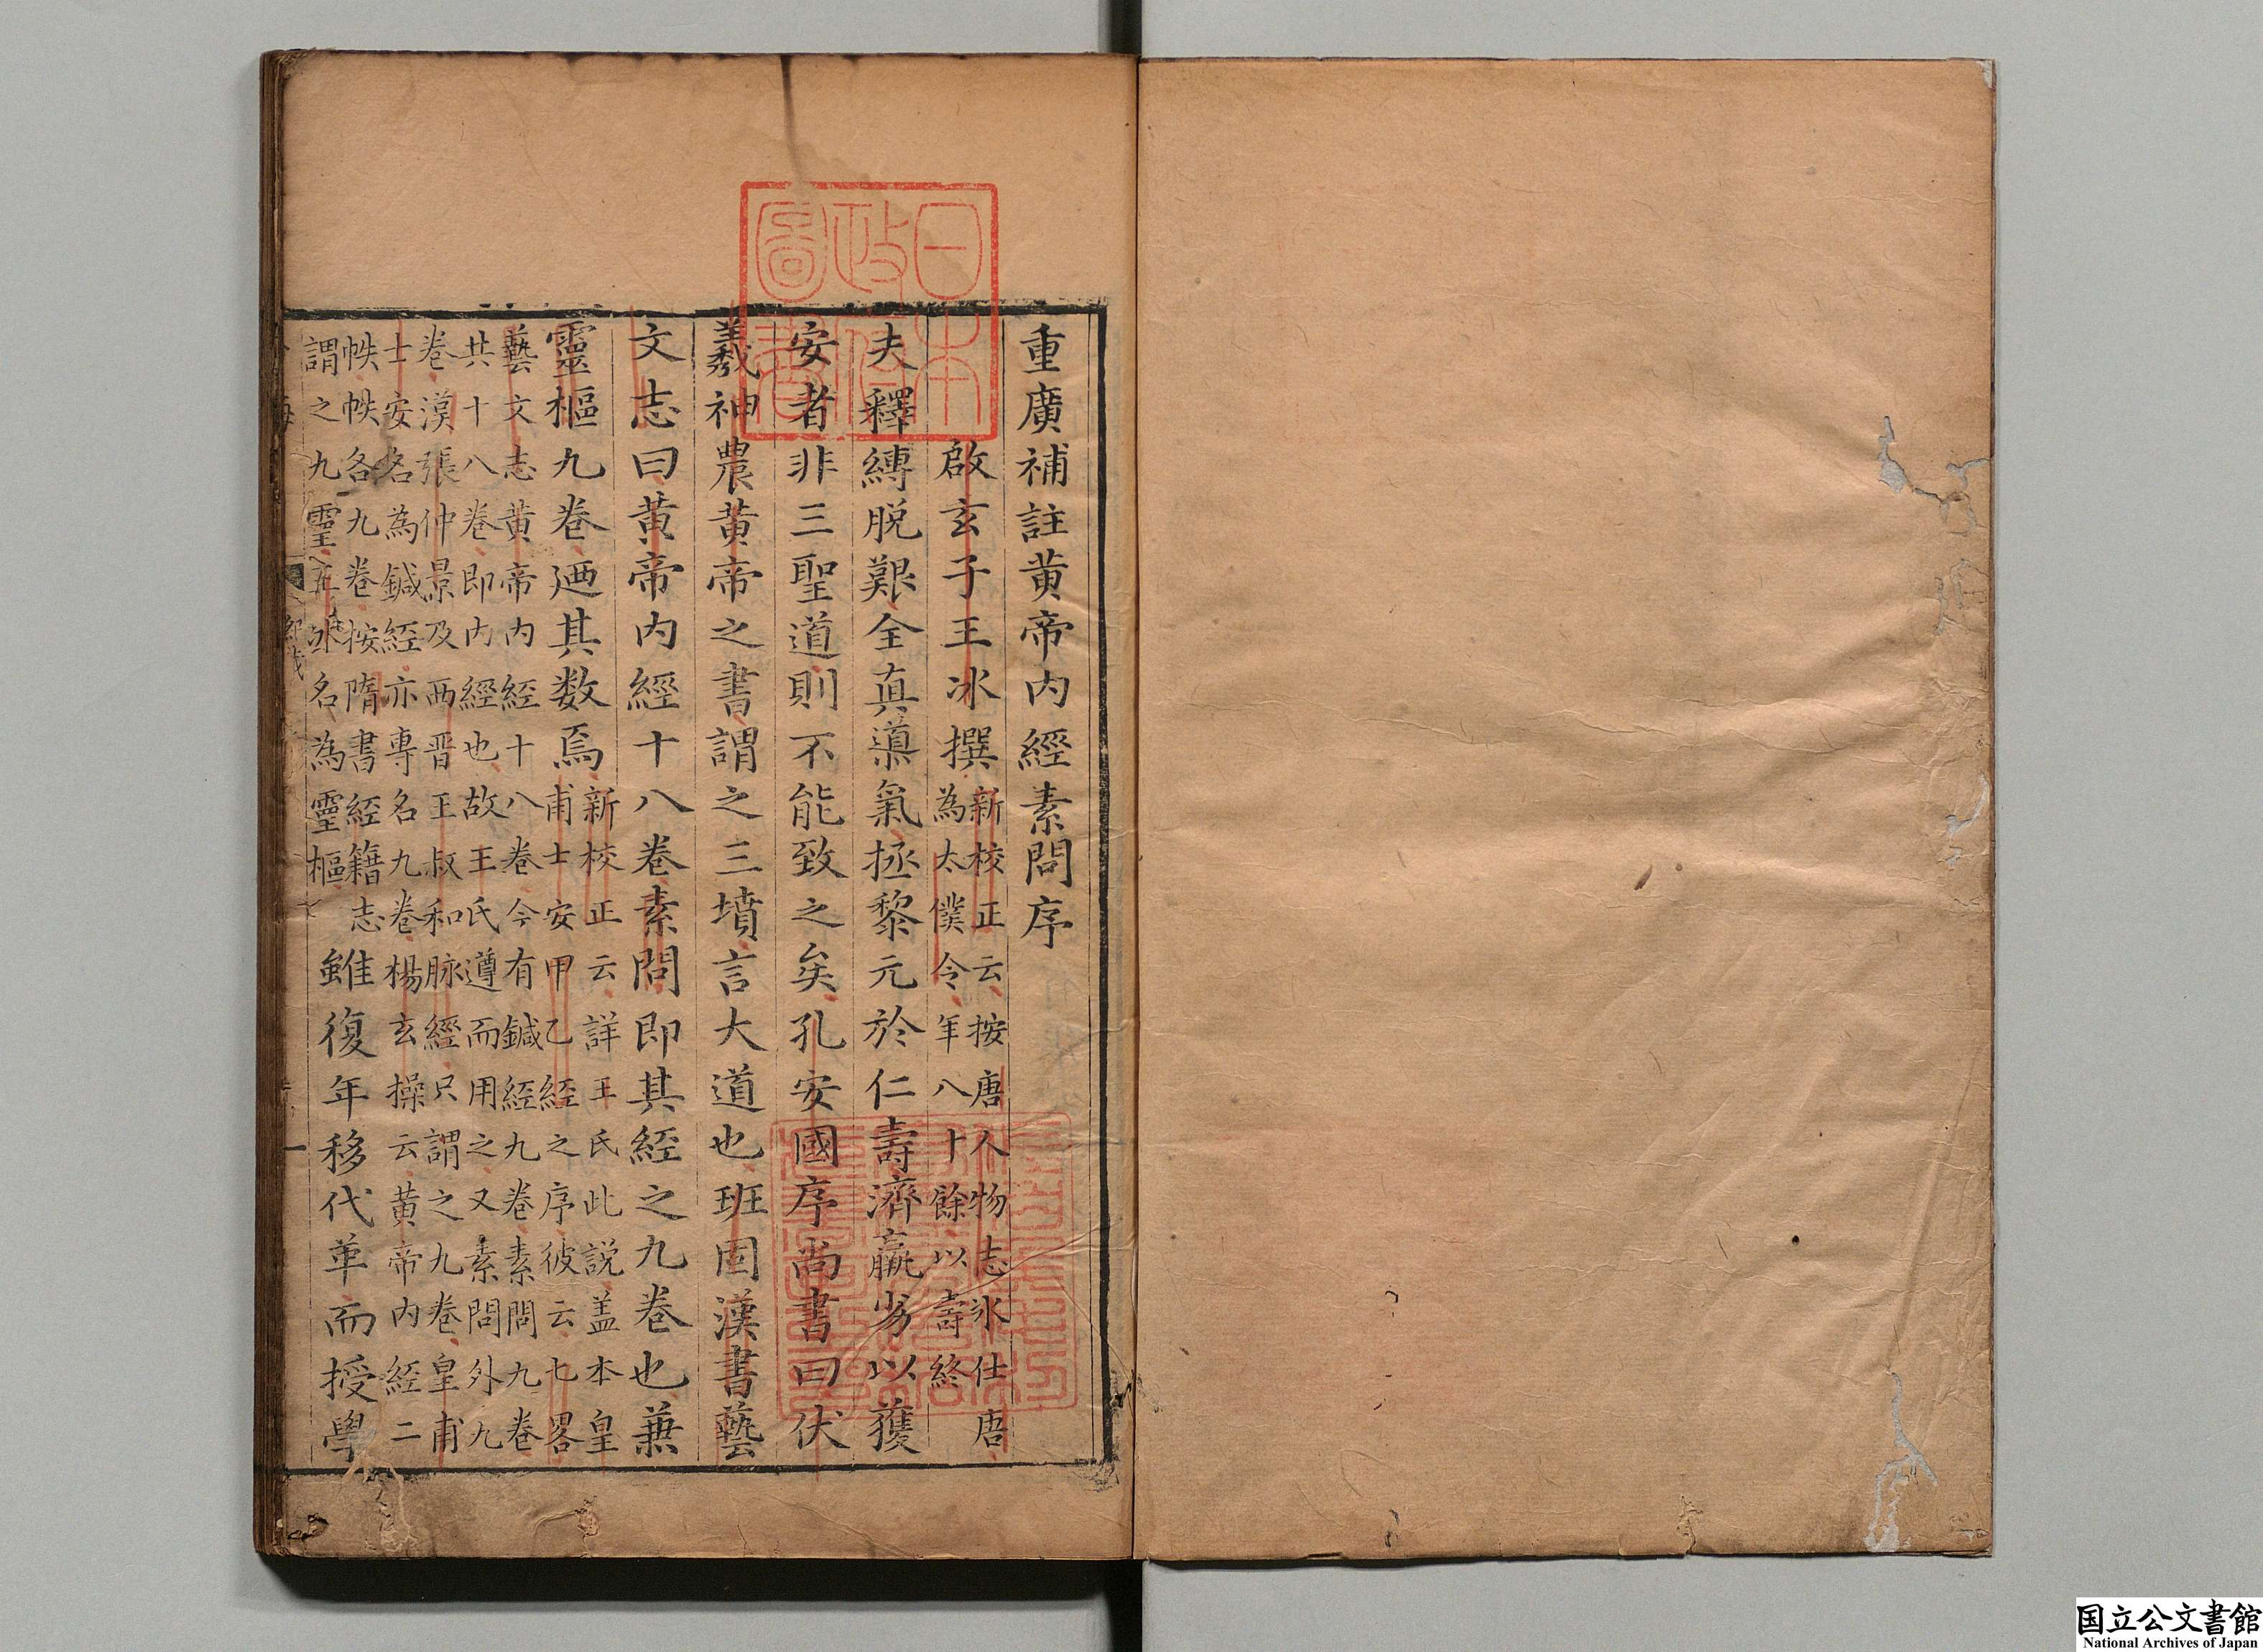 重廣補註黄帝内經素問序
啟玄子王冰撰新校正云按唐人物志冰仕唐為太僕令年八十餘以壽終
夫釋縛脱艱全真導氣拯黎元於仁壽濟羸劣以獲
安者非三聖道則不能致之矣孔安國序尚書曰伏
羲神農黄帝之書謂之三墳言大道也班固漢書藝
文志曰黄帝内經十八卷素問即其經之九卷也兼
靈樞九卷廼其数焉新校正云詳王氏此説盖本皇甫士安甲乙經之序彼云七畧
藝文志黄帝内經十八卷今有鍼經九卷素問九卷
共十八卷即内經也故王氏遵而用之又素問外九
卷漢張仲景及西晋王叔和脉經只謂之九卷皇甫
士安名為鍼經亦專名九卷楊玄操云黄帝内經二
帙帙各九卷按隋書經籍志
謂之九靈王冰名為靈樞
雖復年移代革而授學
一
日本
政府
圖書
国立公文書館
National Archives of Japan